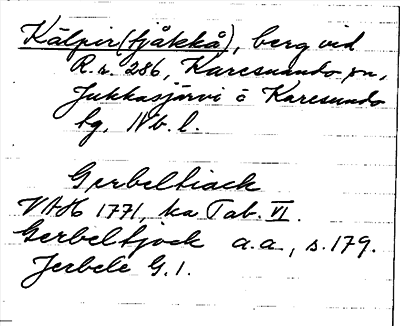 Kälpir(tjåkkå), berg vid
R.r. 286, Karesuando sn,
Jukkasjärvi o Karesundo
lg, Nb. l.
Gerbeltiack
VAH 1771, ka Tab. VI.
Gerbeltjock a.a, s. 179.
Jerbele G. 1.